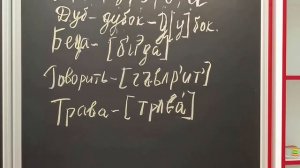 Дуб - дубок - Д[у]бок.
Беда - [б'ида́]
Говорить - [гъвАр'ит']
Трава - [трАва́]